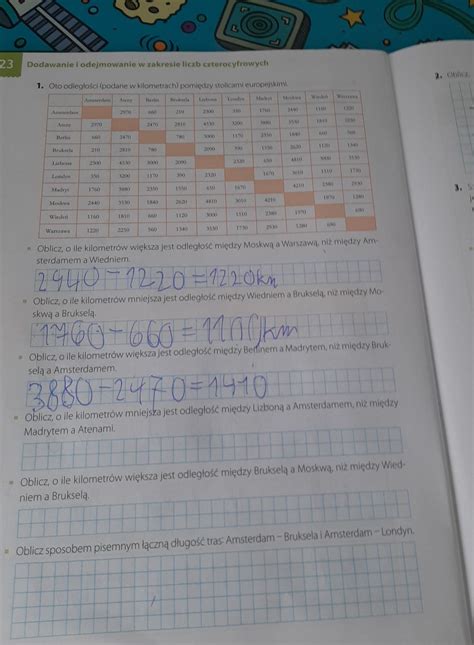 23 Dodawanie i odejmowanie w zakresie liczb czterocyfrowych
1. Oto odległości (podane w kilometrach) pomiędzy stolicami europejskimi.
Amsterdam Ateny Berlin Bruksela Lizbona Londyn Madryt Moskwa Wiedeń Warszawa
Amsterdam 2970 660 210 2300 350 1760 2440 1160 1220
Ateny 2970 2470 2810 4530 3200 3880 3530 1810 2250
Berlin 660 2470 780 3000 1170 2350 1840 660 560
Bruksela 210 2810 780 2090 390 1550 2620 1120 1340
Lizbona 2300 4530 3000 2090 2320 650 4810 3000 3530
Londyn 350 3200 1170 390 2320 1670 3010 1510 1730
Madryt 1760 3880 2350 1550 650 1670 4210 2380 2930
Moskwa 2440 3530 1840 2620 4810 3010 4210 1970 1280
Wiedeń 1160 1810 660 1120 3000 1510 2380 1970 690
Warszawa 1220 2250 560 1340 3530 1730 2930 1280 690
Oblicz, o ile kilometrów większa jest odległość między Moskwą a Warszawą, niż między Am-
sterdamem a Wiedniem.
2940-1220=1220km
Oblicz, o ile kilometrów mniejsza jest odległość między Wiedniem a Brukselą, niż między Mo-
skwą a Brukselą.
1760-660=1100km
Oblicz, o ile kilometrów większa jest odległość między Berlinem a Madrytem, niż między Bruk-
selą a Amsterdamem.
3880-2470=1410
Oblicz, o ile kilometrów mniejsza jest odległość między Lizboną a Amsterdamem, niż między
Madrytem a Atenami.
Oblicz, o ile kilometrów większa jest odległość między Brukselą a Moskwą, niż między Wied-
niem a Brukselą.
Oblicz sposobem pisemnym łączną długość tras: Amsterdam – Bruksela i Amsterdam – Londyn.
2. Oblicz
3.